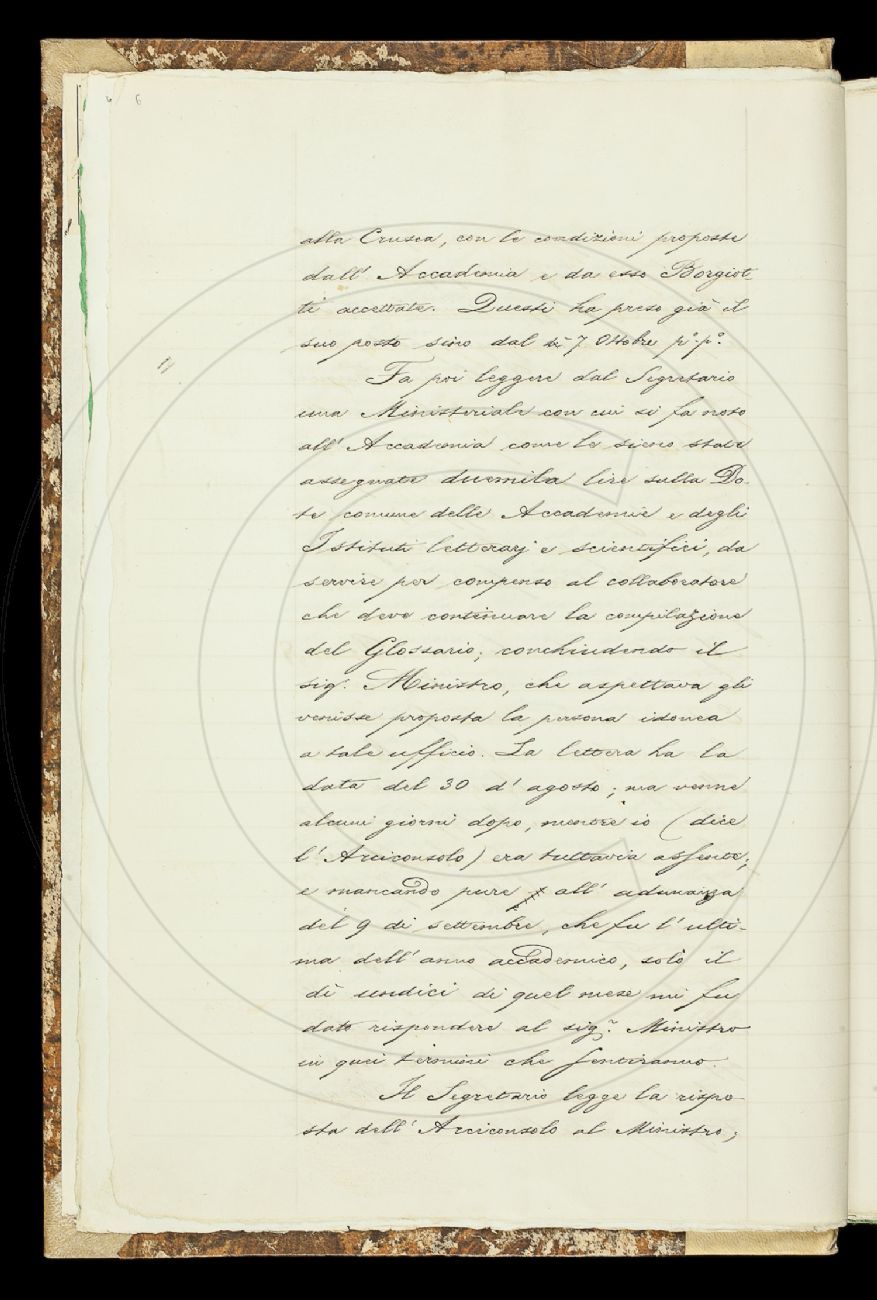 6
alla Crusca, con le condizioni proposte
dall' Accademia e da esso Borgiot-
ti accettate. Questi ha preso già il
suo posto sino dal dì 7 Ottobre p.° p.°
Fa poi leggere dal Segretario
una Ministeriale con cui si fa noto
all' Accademia come le sieno state
assegnate duemila lire sulla Do-
te comune delle Accademie e degli
Istituti letterarj e scientifici, da
servire per compenso al collaboratore
che deve continuare la compilazione
del Glossario; conchiudendo il
sig.r Ministro, che aspettava gli
venisse proposta la persona idonea
a tale ufficio. La lettera ha la
data del 30 d' agosto; ma venne
alcuni giorni dopo, mentre io (dice
l' Arciconsolo) era tuttavia assente;
e mancando pure all' adunanza
del 9 di settembre, che fu l' ulti-
ma dell' anno accademico, solo il
dì undici di quel mese mi fu
dato rispondere al sig.r Ministro
in quei termini che sentiranno.
Il Segretario legge la rispo-
sta dell' Arciconsolo al Ministro;